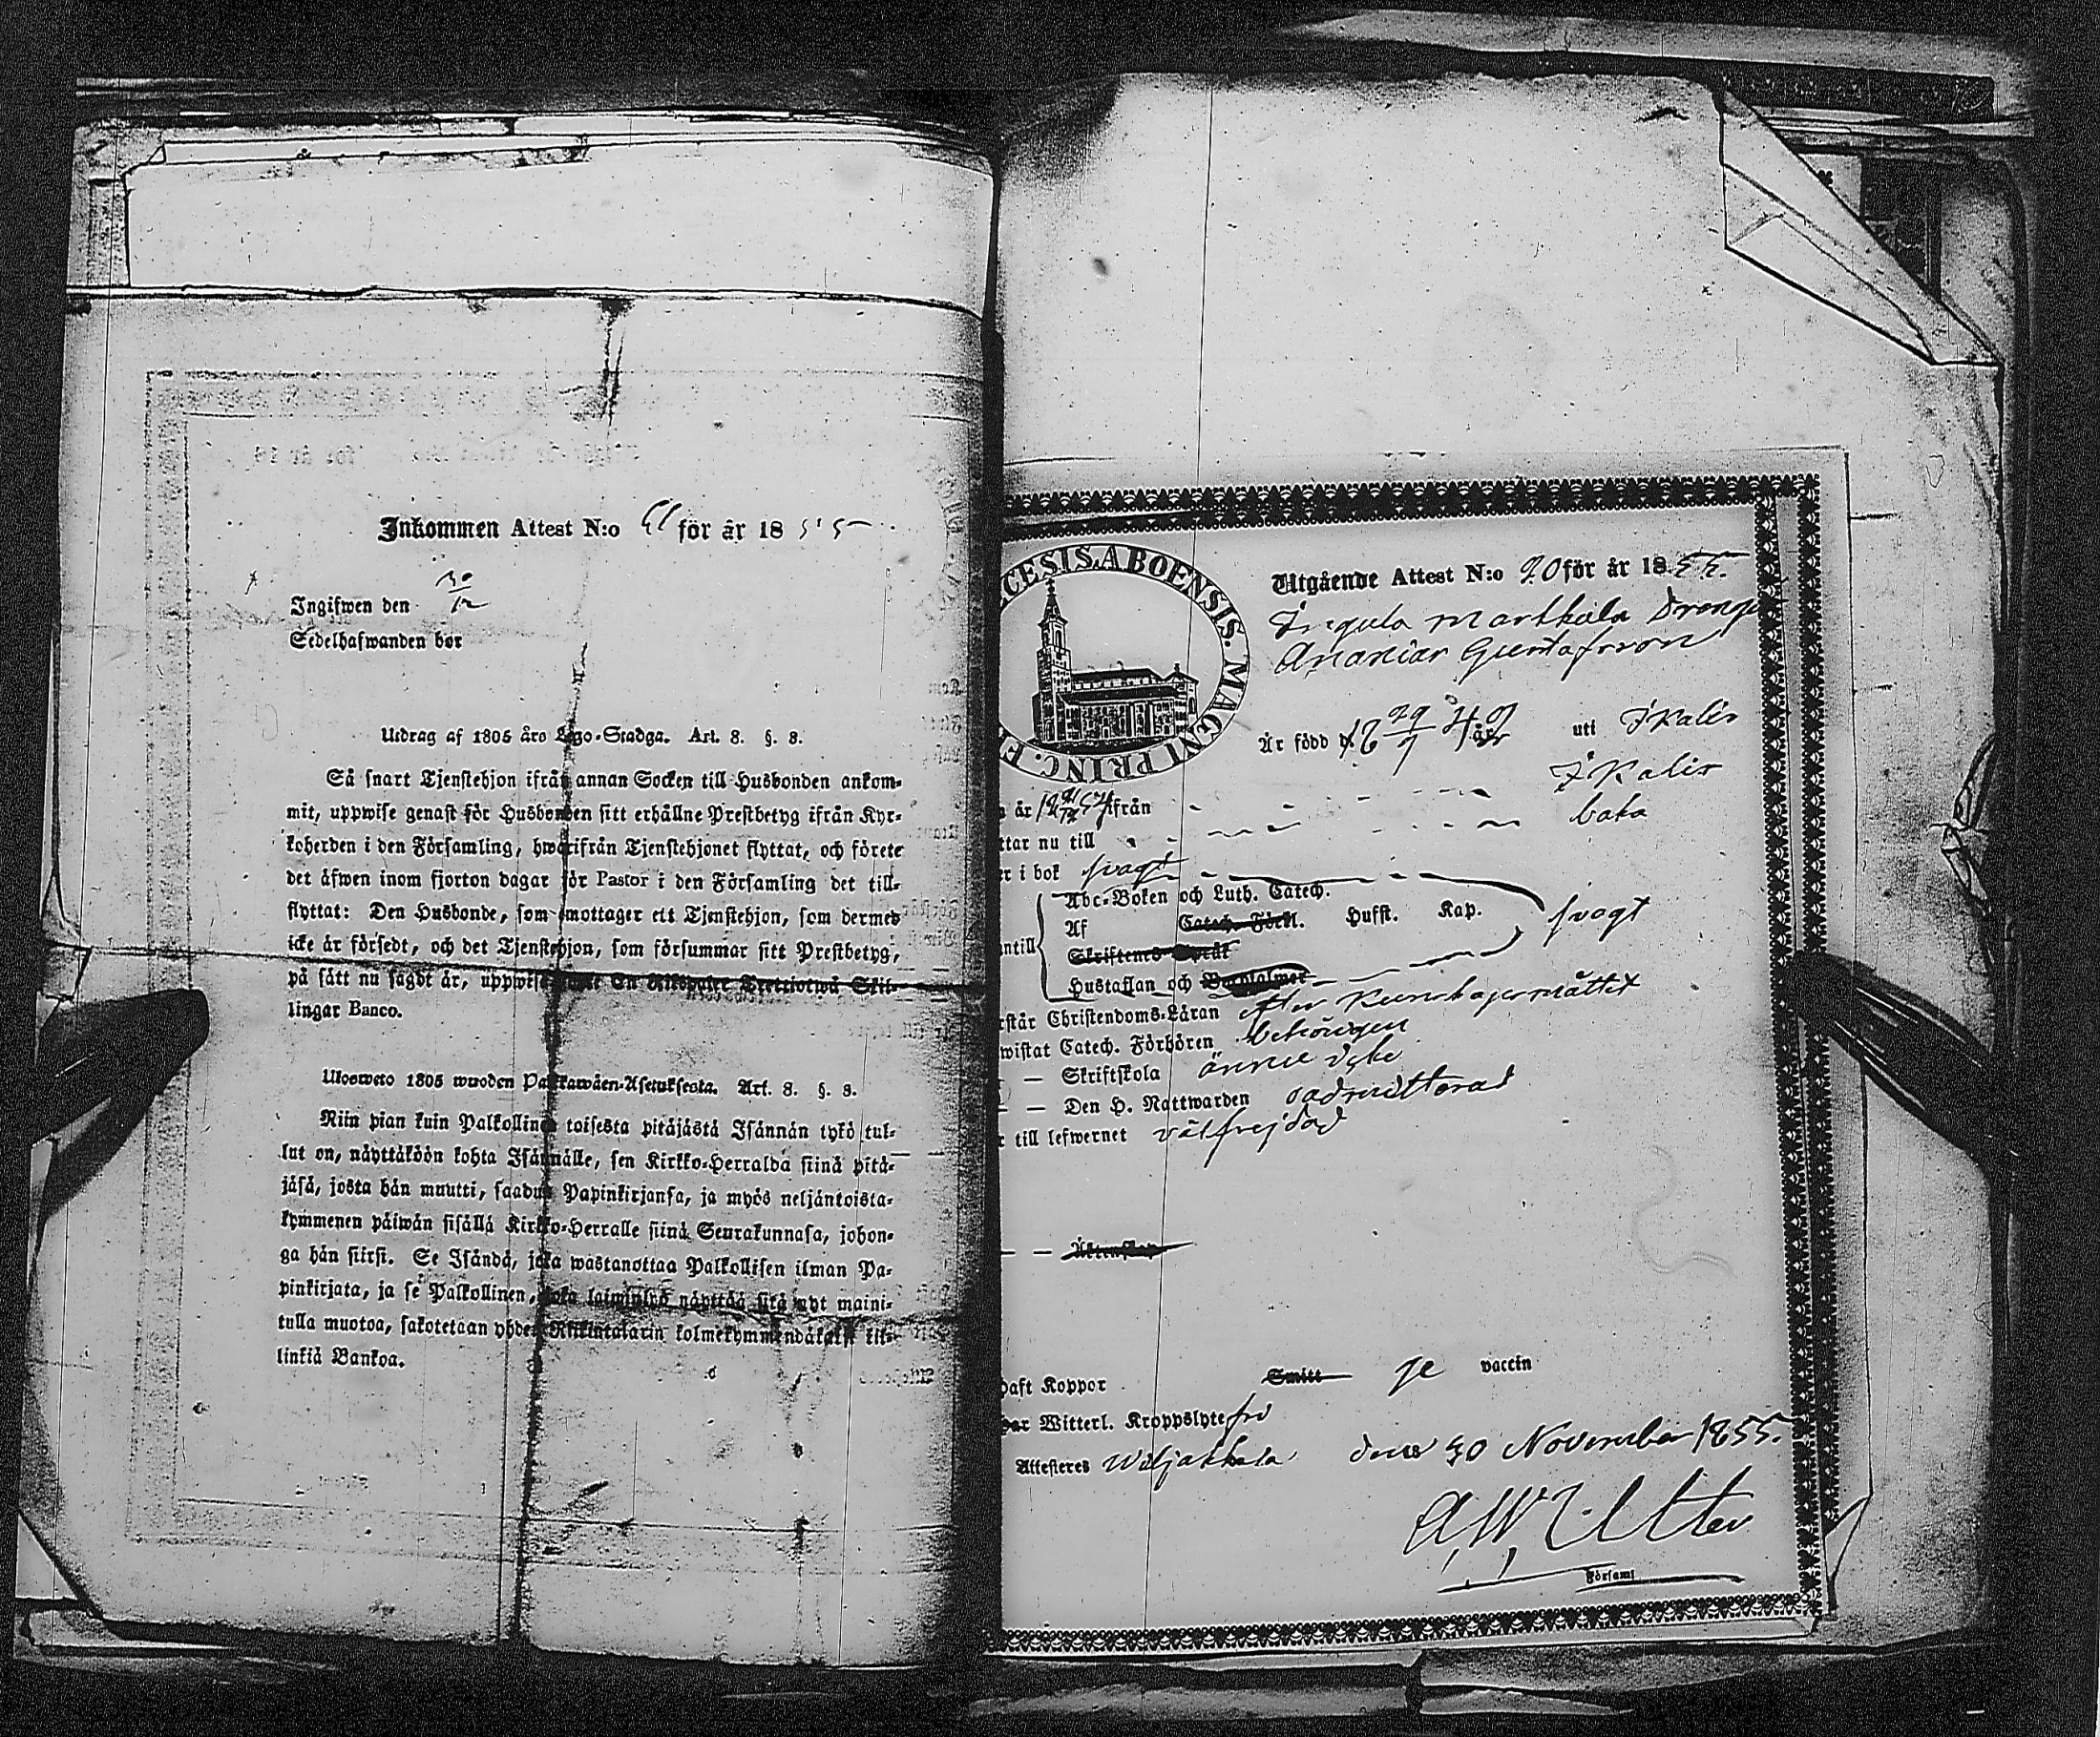 Inkommen Attest N:o 61 för år 1855
Ingifwen den 30/12
Sedelhafwanden bor
Utdrag af 1805 års Lego-Stadga. Art. 8. §. 8.
Så snart Tjenstehjon ifrån annan Socken till Husbonden ankom-
mit, uppwise genast för Husbonden sitt erhållne Prestbetyg ifrån Kyr-
koherden i den Församling, hwarifrån Tjenstehjonet flyttat, och förete
det äfwen inom fjorton dagar för Pastor i den Församling det till-
flyttat: Den Husbonde, som emottager ett Tjenstehjon, som dermed
icke är försedt, och det Tjenstehjon, som försummar sitt Prestbetyg,
på sätt nu sagdt är, uppwisa En Riksdaler Trettiotwå Skil-
lingar Banco.
Ulosweto 1805 wuoden Palkkawäen-Asetuksesta. Art. 8. §. 8.
Niin pian kuin Palkollinen toisesta pitäjästä Isännän tykö tul-
lut on, näyttäköön kohta Isännälle, sen Kirkko-Herralda siinä pitä-
jäsä, josta hän muutti, saadun Papinkirjansa, ja myös neljäntoista-
kymmenen päiwän sisällä Kirkko-Herralle siinä Seurakunnasa, johon-
ga hän siirsi. Se Isändä, joka wastanottaa Palkollisen ilman Pa-
pinkirjata, ja se Palkollinen, joka laiminlyö näyttää sitä nyt maini-
tulla muotoa, sakotetaan yhden Riikintalarin kolmekymmendäkaksi kil-
linkiä Bankoa.
CESIS.ABOENSIS.MAGNI PRINC.F
Utgående Attest N:o 20 för år 1855.
Markkula Dreng
Ananias Gustafsson
Är född d. 18 29/7 40 år uti Ikalis
är ifrån Ikalis
ttar nu till
r i bok svagt
Abc-Boken och Luth. Catech.
Af Catech. Förkl. Hufst. Kap. svagt
ntill
Skriftenes Språk
Hustaflan och
rstår Christendoms-Läran efter Kunskapsmåttet
wistat Catech. Förhören behörigen
— Skriftskola ännu icke
— — Den H. Nattwarden oadmitterad
r till lefwernet välfrejdad
— — Äktenskap
haft Koppor Smitt ge vaccin
har Witterl. Kroppslyte fri
Attesteres Wiljakkala den 30 November 1855.
Församl